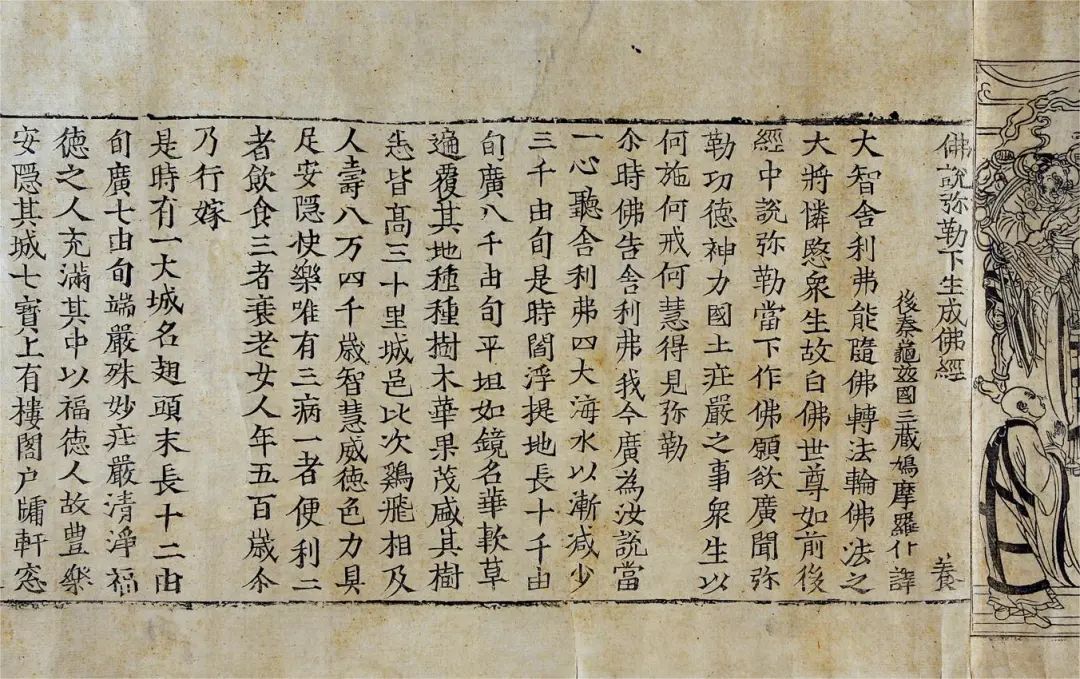 佛說弥勒下生成佛經　養
後秦龜茲國三藏鳩摩羅什譯
大智舍利弗能隨佛轉法輪佛法之
大將憐愍衆生故白佛世尊如前後
經中說弥勒當下作佛願欲廣聞弥
勒功德神力國土疘嚴之事衆生以
何施何戒何慧得見弥勒
尒時佛告舍利弗我今廣為汝說當
一心聽舍利弗四大海水以漸减少
三千由旬是時閻浮提地長十千由
旬廣八千由旬平坦如鏡名華軟草
遍覆其地種種樹木華果茂盛其樹
悉皆髙三十里城邑比次鷄飛相及
人壽八万四千歳智慧威徳色力具
足安隱快樂唯有三病一者便利二
者飲食三者衰老女人年五百歳尒
乃行嫁
是時有一大城名翅頭末長十二由
旬廣七由旬端嚴殊妙疘嚴清淨福
徳之人充滿其中以福徳人故豊樂
安隱其城七寶上有樓閣户牖軒窓